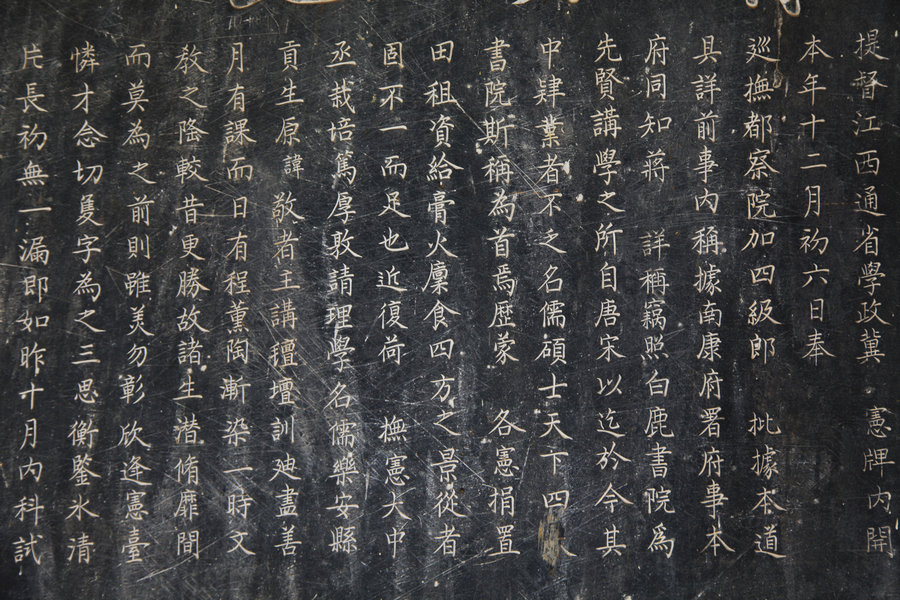 提督江西通省學政冀 憲牌內開
本年十二月初六日奉
巡撫都察院加四級郎 批據本道
具詳前事內稱據南康府署府事本
府同知蔣 詳稱竊照白鹿書院為
先賢講學之所自唐宋以迄於今其
中肄業者不乏名儒碩士天下四人
書院斯稱為首焉歷蒙 各憲捐置
田租資給膏火廩食四方之景從者
固不一而足也近復荷 撫憲大中
丞栽培篤厚敦請理學名儒樂安縣
貢生原諱敬者主講壇訓廸盡善
月有課而日有程薰陶漸染一時文
教之隆較昔更勝故諸生潛脩靡間
而莫為之前則雖美勿彰欣逢憲臺
憐才念切隻字為之三思衡鑒冰清
片長初無一漏即如昨十月內科試